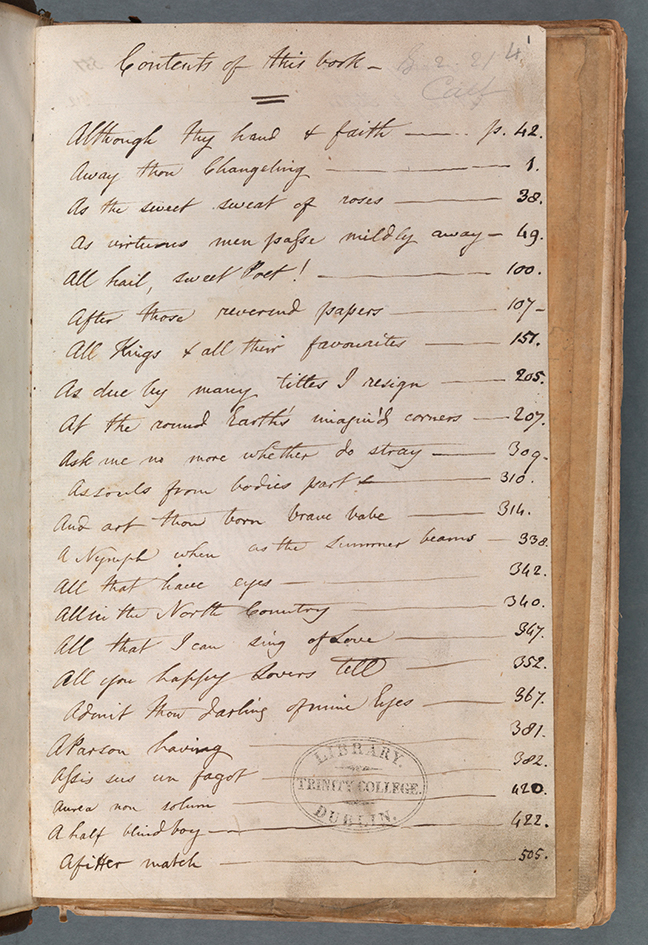 1
Contents of this book - G. 2. 21
Although thy hand & faith p. 42.
Away thou Changeling 1.
As the sweet sweat of roses 38.
As virtuous men passe mildly away 49.
All hail, sweet Poet! 100.
After those reverend papers 107-
All Kings & all their favourites 151.
As due by many titles I resign 205.
At the round Earth's imagin'd corners 207.
Ask me no more whether do stray 309.
As souls from bodies part 310.
And art thou born brave babe 314.
A Nymph when as the Summer beams 338.
All that have eyes 342.
All in the North Country 340.
All that I can sing of Love 347.
All you happy Lovers tell 352.
Admit thou darling of mine Eyes 367.
A Parson having 381.
Assis sus un fagot 382.
Aurea non solum 420.
A half blind boy 422.
A fitter match 505.
LIBRARY.
TRINITY COLLEGE.
DUBLIN.